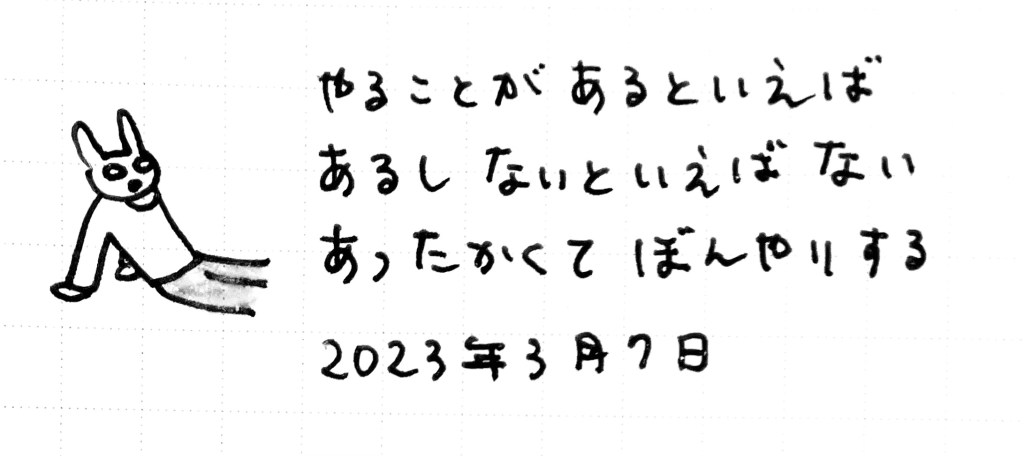 やることが あるといえば
あるし ないといえば ない
あったかくて ぼんやりする
2023年3月7日